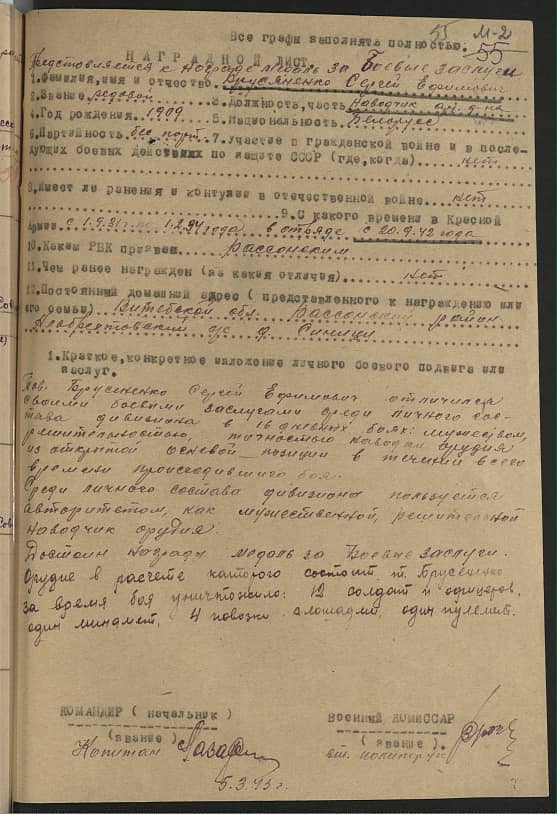 55 М-2
Все графы заполнять полностью. 55
НАГРАДНОЙ ЛИСТ
Представляется к награде медаль за Боевые заслуги
1.Фамилия,имя и отчество Брусяненко Сергей Ефимович
2.Звание рядовой 3.Должность,часть наводчик арт. д-на
4.Год рождения 1909 5.Национальность белорусс
6.Партийность бес. парт. 7.Участие в гражданской войне и в после-
дующих боевых действиях по защите СССР (где,когда) нет
8.Имеет ли ранения и контузии в отечественной войне нет
9.С какого времени в Красной
Армии с 1.9.31г. по 1.2.34 года в отряде с 20.9.42 года
10.Каким РВК призван Россонским
11.Чем ранее награжден (за какие отличия) нет
12.Постоянный домашний адрес ( представленного к награждению или
его семьи) Витебской обл. Россонский район
с/с д. Синици
1.Краткое,конкретное изложение личного боевого подвига или
заслуг.
Тов. Брусяненко Сергей Ефимович отличился
своими боевыми заслугами среди личного сос-
тава дивизиона в 16 дневных боях: мужеством,
решительностью, точностью наводки орудия
из открытой огневой позиции в течении всего
времени происходившего боя.
Среди личного состава дивизиона пользуется
авторитетом, как мужественной, решительной
наводчик орудия.
Достоин награды медаль за Боевые заслуги.
Орудие в расчете которого состоит т. Брусененко
за время боя уничтожило: 12 солдат и офицеров,
один миномет, 4 повозки с лошадми, один пулемет.
КОМАНДИР ( начальник ) Военный КОМИССАР
(звание) ( звание ).
Капитан ст. политрук
5.3.43г.